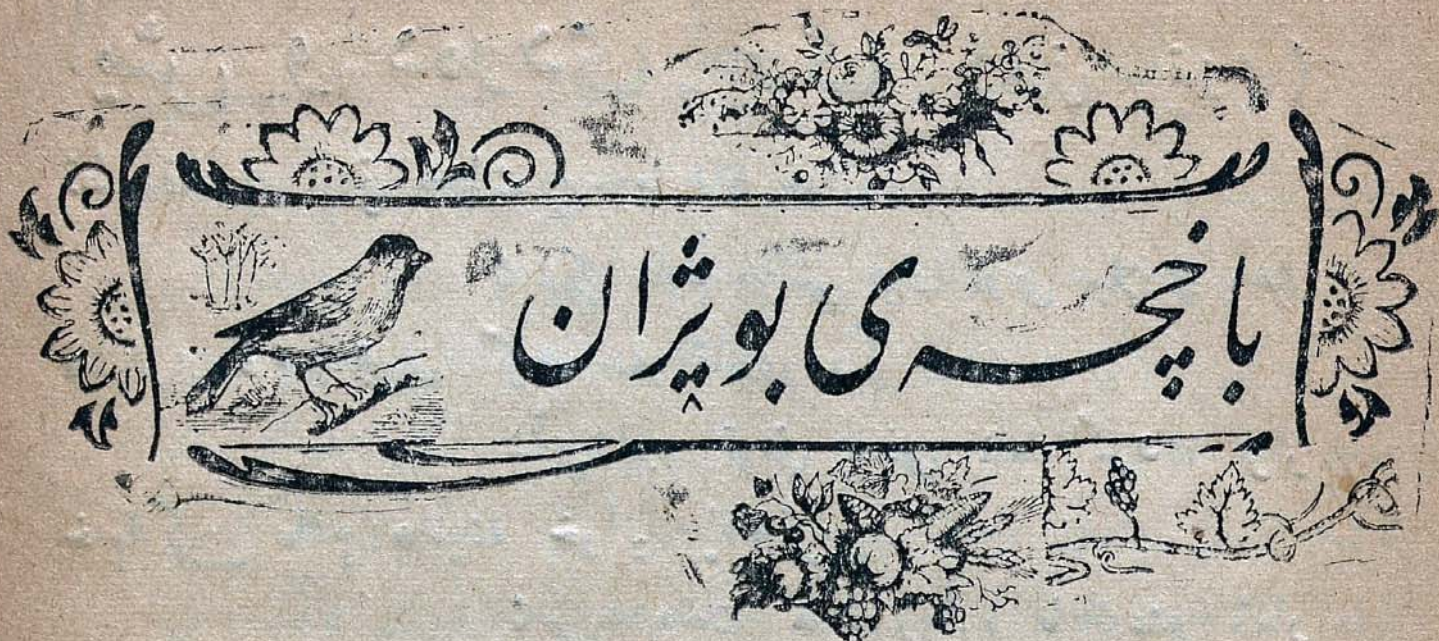 باخچه ی بوێژان